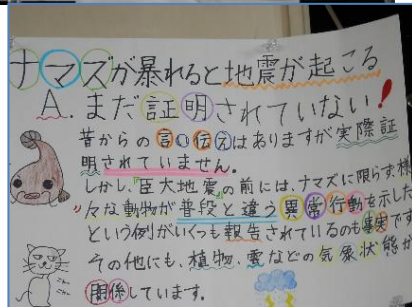 ナマズが暴れると地震が起こる
A. まだ証明されていない!
昔からの言い伝えはありますが実際証
明されていません。
しかし、巨大地震の前には、ナマズに限らず、様
々な動物が普段と違う異常行動を示した
という例がいくつも報告されているのも事実です
その他にも、植物、雲などの気象状態が
関係しています。